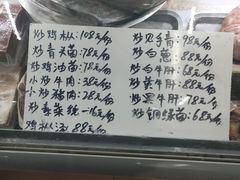 炒鸡枞: 108元/份
炒青头菌: 78元/份
炒鸡油菌: 78元/份
小炒牛肉: 38元/份
小炒猪肉: 78元/份
炒素菜统一16元/份
鸡枞汤 88元/份
炒见手青: 98元/份
炒白葱: 88元/份
炒白牛肝: 68元/份
炒黄牛肝: 88元/份
炒黑牛肝: 78元/份
炒铜绿菌: 68元/份